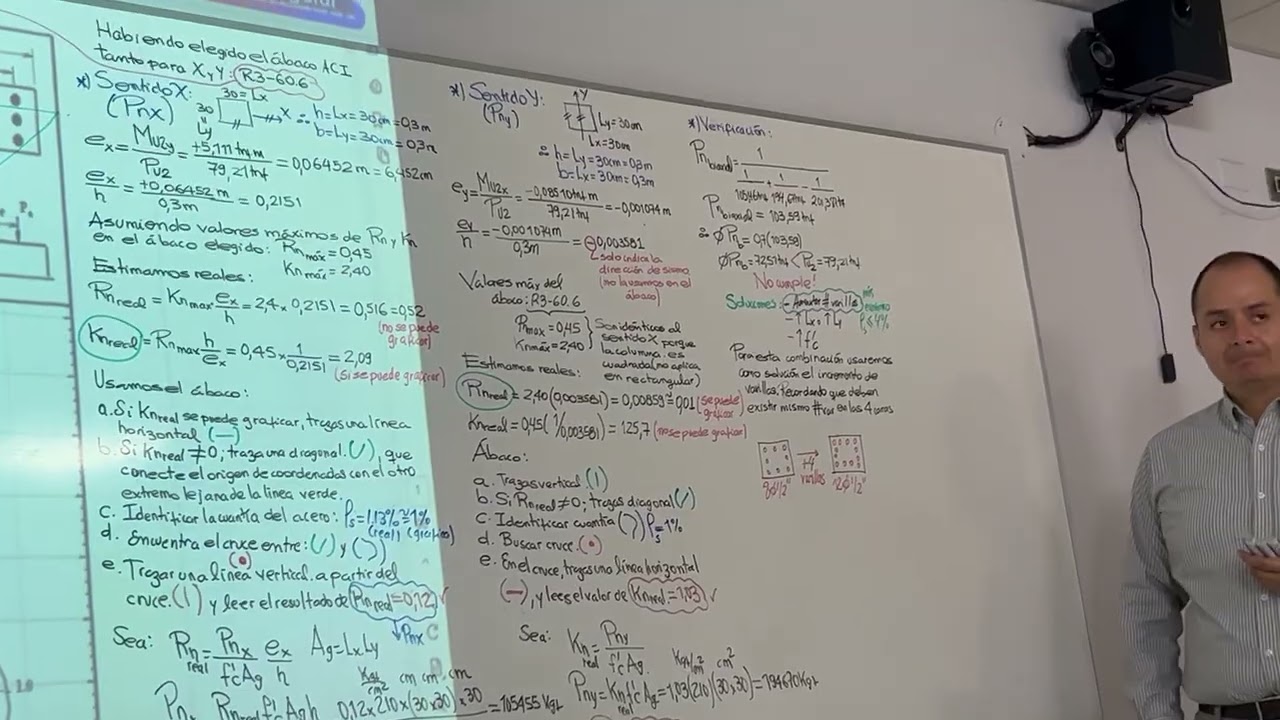 Habiendo elegido el ábaco ACI
tanto para X, Y: R3-60.6
*) Sentido X:
(Pnx)
30 = Lx
30
Ly
X
∴ h = Lx = 30 cm = 0,3 m
b = Ly = 30 cm = 0,3 m
ex = Mu2y/Pu2 = +5,111 tnf m/79,21 tnf = 0,06452 m = 6,452 cm
ex/h = +0,06452 m/0,3 m = 0,2151
Asumiendo valores máximos de Rn y Kn
en el ábaco elegido: Rn máx = 0,45
Kn máx = 2,40
Estimamos reales:
Rn real = Kn max ex/h = 2,4 x 0,2151 = 0,516 = 0,52
(no se puede graficar)
Kn real = Rn max h/ex = 0,45 x 1/0,2151 = 2,09
(Si se puede graficar)
Usamos el ábaco:
a. Si Kn real se puede graficar, trazas una línea
horizontal (—)
b. Si Kn real ≠ 0; traza una diagonal (/), que
conecte el origen de coordenadas con el otro
extremo lejano de la línea verde.
c. Identificar la cuantía del acero: Ps = 1,13% ≅ 1%
(real) (gráfico)
d. Encuentra el cruce entre: (/) y ())
(•)
e. Trazar una línea vertical a partir del
cruce. (|) y leer el resultado de Rn real = 0,12 ✓
↓ Pnx
Sea: Rn real = Pnx/f'c Ag ex/h Ag = Lx Ly
Kgf/cm² cm cm cm
Pnx Rn real f'c Ag h 0,12 x 210 x (30 x 30) x 30 = 105455 Kgf
*) Sentido Y:
(Pny)
Y
Ly = 30 cm
Lx = 30 cm
∴ h = Ly = 30 cm = 0,3 m
b = Lx = 30 cm = 0,3 m
ey = Mu2x/Pu2 = -0,0851 tnf m/79,21 tnf = -0,001074 m
ey/h = -0,001074 m/0,3 m = -0,003581
solo indica la
dirección de sismo
(no la usamos en el
ábaco)
Valores máx del
ábaco: R3-60.6
Rmax = 0,45
Kn máx = 2,40
Son idénticos al
sentido X porque
la columna es
cuadrada (no aplica
en rectangular)
Estimamos reales:
Rn real = 2,40 (0,003581) = 0,00859 ≅ 0,01 (se puede graficar)
Kn real = 0,45 (1/0,003581) = 125,7 (no se puede graficar)
Ábaco:
a. Trazas vertical (|)
b. Si Rn real ≠ 0; trazas diagonal (/)
c. Identificar cuantía ()) Ps = 1%
d. Buscar cruce. (•)
e. En el cruce, trazas una línea horizontal
(—), y lees el valor de Kn real = 1,03 ✓
Sea: Kn real = Pny/f'c Ag
Kgf/cm² cm²
Pny = Kn real f'c Ag = 1,03 (210) (30 x 30) = 194670 Kgf
*) Verificación:
Pn biaxial = 1
Pn biaxial = 103,59 tnf
∴ ØPnb = 0,7 (103,59)
ØPnb = 72,51 tnf < Pu2 = 79,21 tnf
No cumple!
Soluciones: - Aumentar # varillas
más
P ≤ 4%
- ↑ Lx, ↑ Ly
- ↑ f'c
Para esta combinación usaremos
como solución el incremento de
varillas. Recordando que deben
existir mismo # var en las 4 caras
8Ø1/2"
+4
varillas
12Ø1/2"
1.0